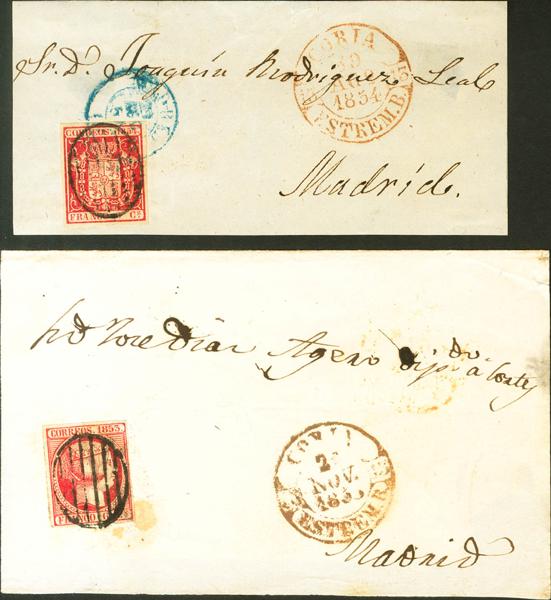 Sr. D. Joaquin Rodriguez Leal
CORIA
1854
ESTREM.B
CORREOS. 1854
FRANCO 6 Cs
Madrid.
Agero dip do a Cortes
CORREOS. 1853
FRANCO 6 C
CORIA
2
NOV.
185
ESTREM.B
Madrid